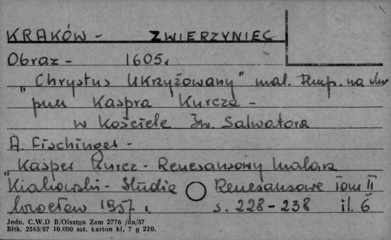 KRAKÓW - ZWIERZYNIEC
Obraz - 1605r.
"Chrystus Ukrzyżowany" mal. temp. na
pnu Kaspra Kurcza -
w kościele Św. Salwatora
A. Fischinger -
"Kasper Kurcz - Renesansowy malarz
Studia Renesansowe Tom II
Wrocław 1957 r. s. 228-238 il. 6
Jedn. C.W.D B/Olsztyn Zam 2776 /os/57
Bltk. 2563/57 10.000 szt. karton kl. 7 g 220.